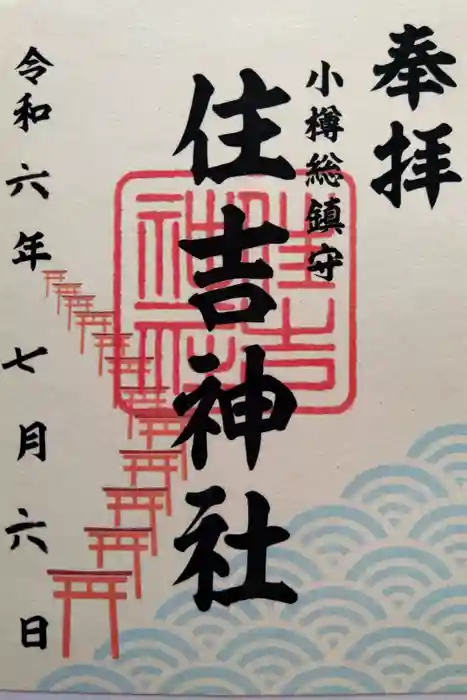 奉拝
小樽総鎮守
住吉神社
令和六年七月六日
住吉
神社